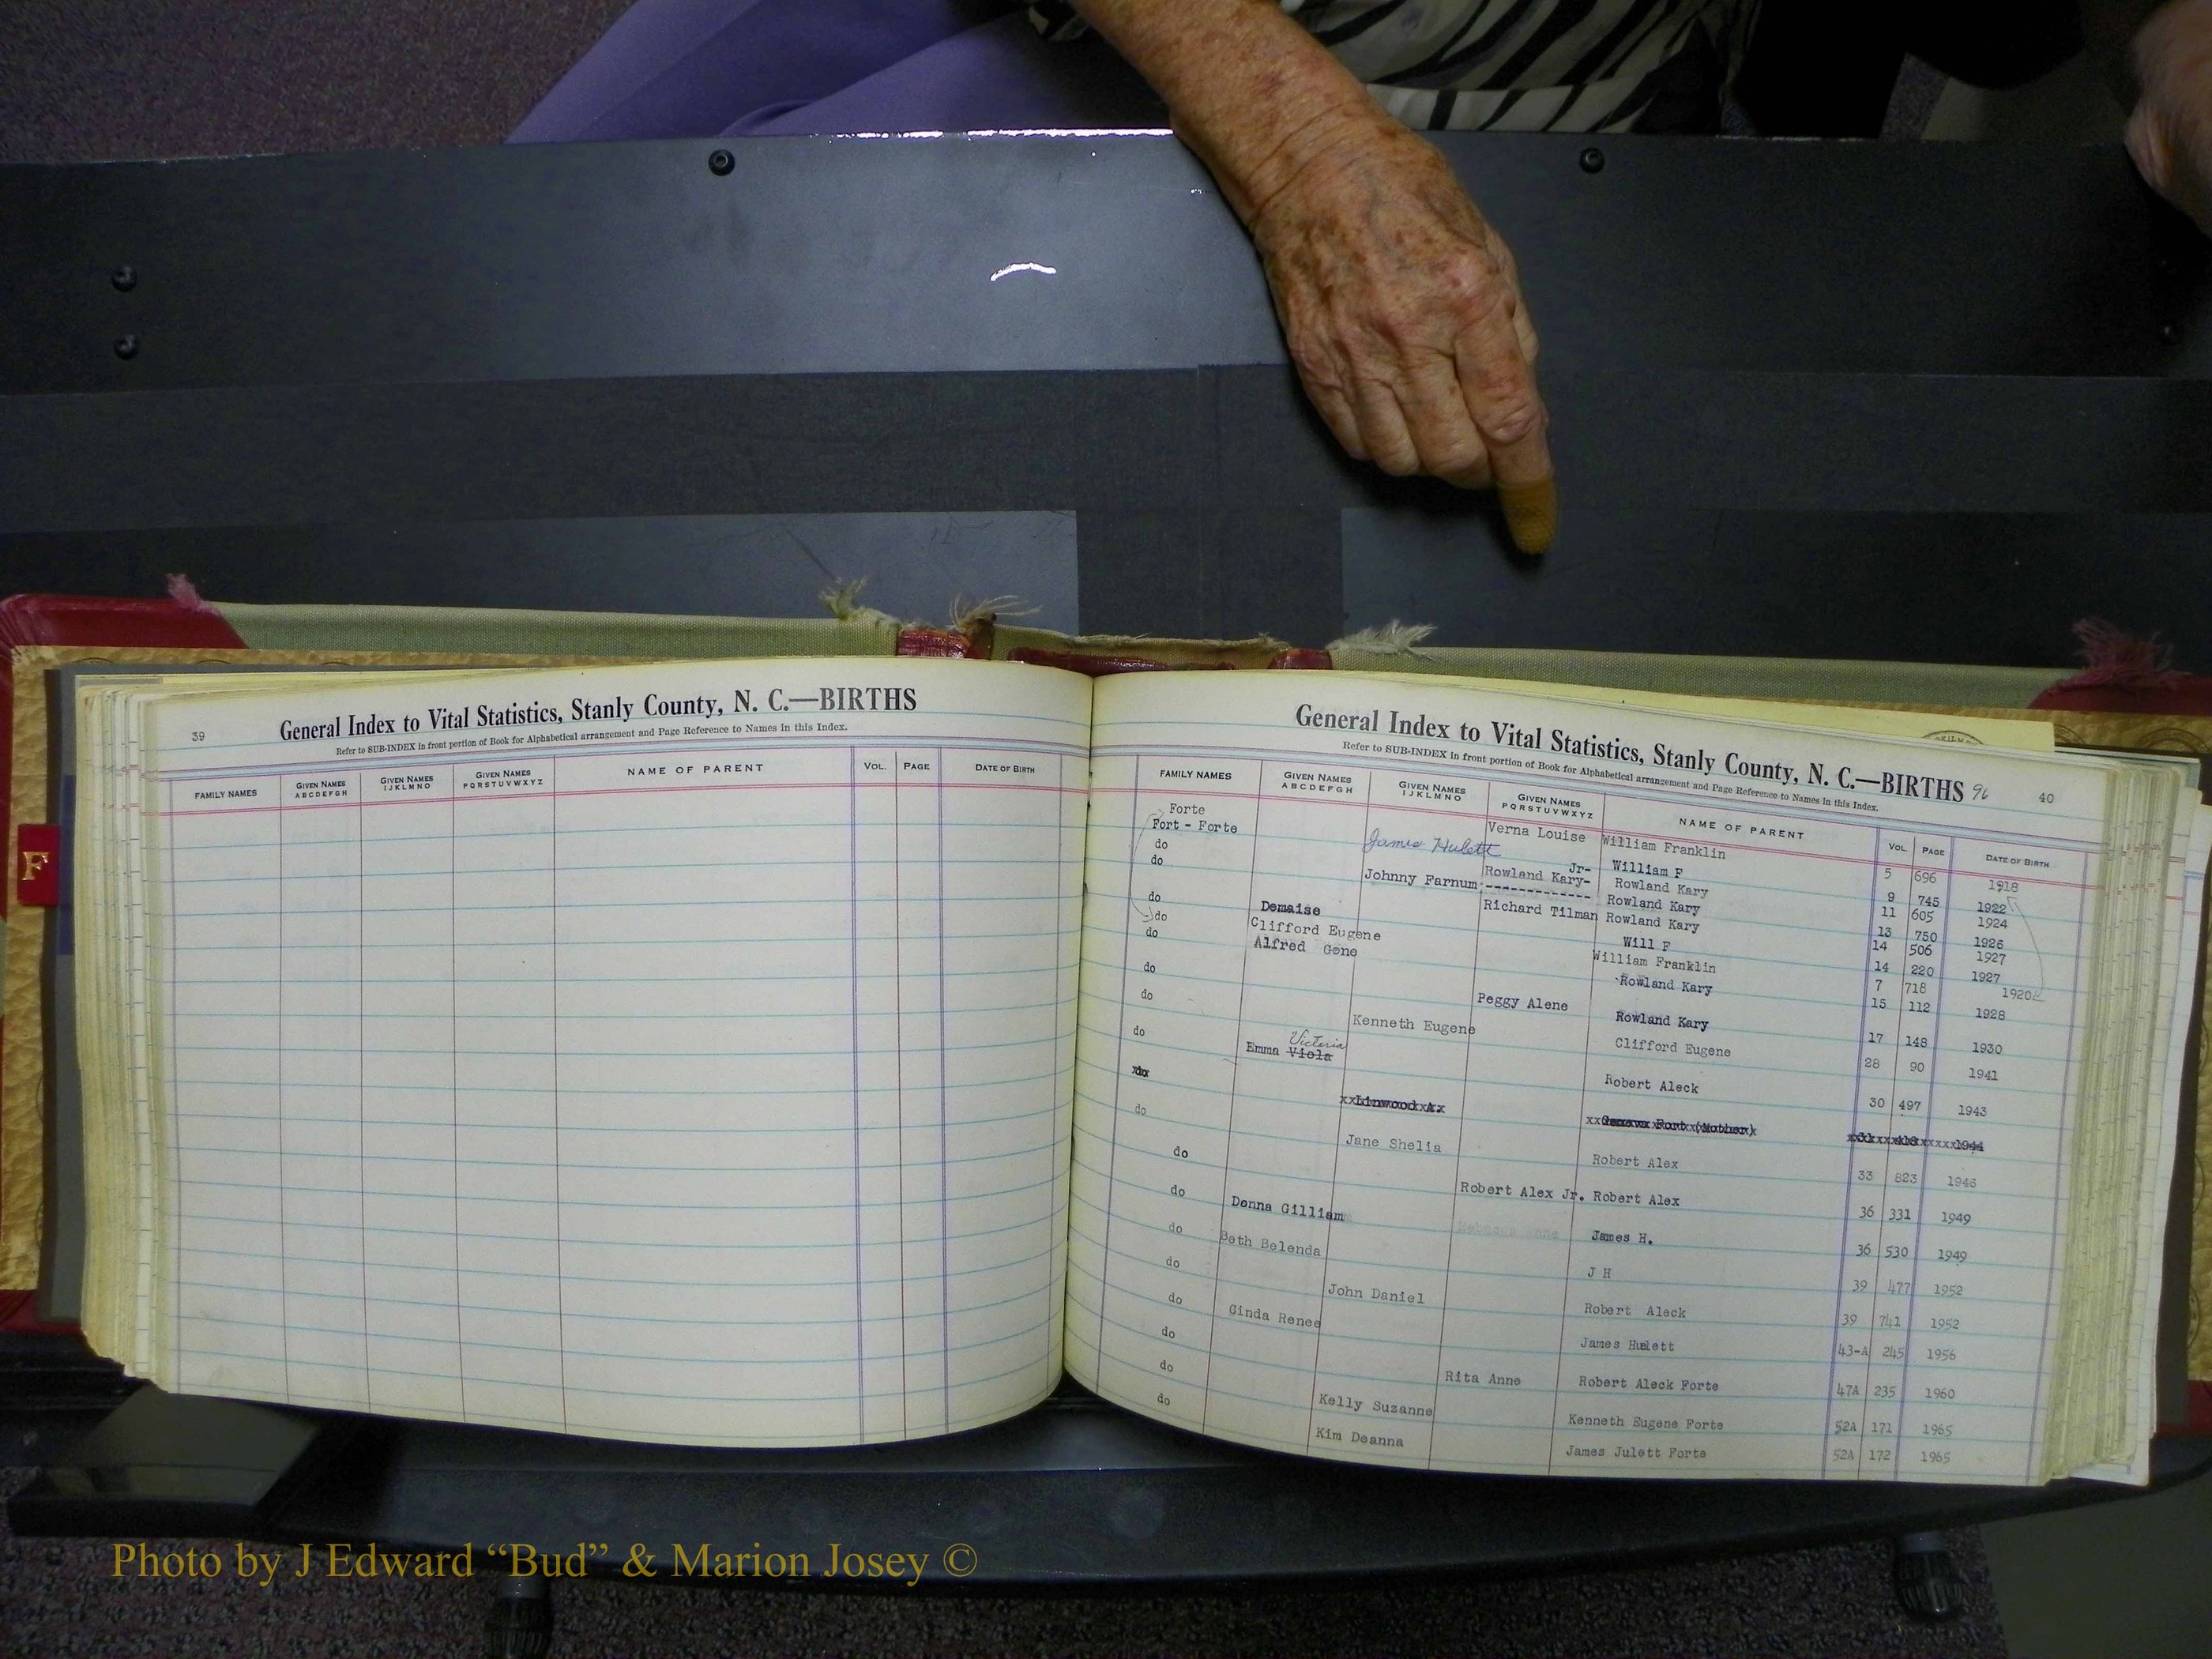 39
General Index to Vital Statistics, Stanly County, N. C.—BIRTHS
Refer to SUB-INDEX in front portion of Book for Alphabetical arrangement and Page Reference to Names in this Index.
FAMILY NAMES GIVEN NAMES ABCDEFGH GIVEN NAMES IJKLMNO GIVEN NAMES PQRSTUVWXYZ NAME OF PARENT VOL. PAGE DATE OF BIRTH
F
General Index to Vital Statistics, Stanly County, N. C.—BIRTHS 96 40
Refer to SUB-INDEX in front portion of Book for Alphabetical arrangement and Page Reference to Names in this Index.
FAMILY NAMES GIVEN NAMES ABCDEFGH GIVEN NAMES IJKLMNO GIVEN NAMES PQRSTUVWXYZ NAME OF PARENT VOL. PAGE DATE OF BIRTH
Forte Verna Louise William Franklin 5 696 1918
Fort - Forte James Hulett Jr- William F 9 745 1922
do Rowland Kary- Rowland Kary 11 605 1924
do Johnny Farnum ------------ Rowland Kary 13 750 1926
Richard Tilman Rowland Kary 14 506 1927
do Demaise Will F 14 220 1927
do Clifford Eugene William Franklin 7 718 1920
do Alfred Gene Rowland Kary 15 112 1928
do Peggy Alene Rowland Kary 17 148 1930
do Kenneth Eugene Clifford Eugene 28 90 1941
do Emma Viola Victoria Robert Aleck 30 497 1943
do Linwood A. Fort (Mother) 1944
do Jane Shelia Robert Alex 33 823 1946
do Robert Alex Jr. Robert Alex 36 331 1949
do Donna Gilliam James H. 36 530 1949
do Beth Belenda J H 39 477 1952
do John Daniel Robert Aleck 39 741 1952
do Cinda Renee James Hulett 43-A 245 1956
do Rita Anne Robert Aleck Forte 47A 235 1960
do Kelly Suzanne Kenneth Eugene Forte 52A 171 1965
do Kim Deanna James Julett Forte 52A 172 1965
Photo by J Edward “Bud” & Marion Josey ©